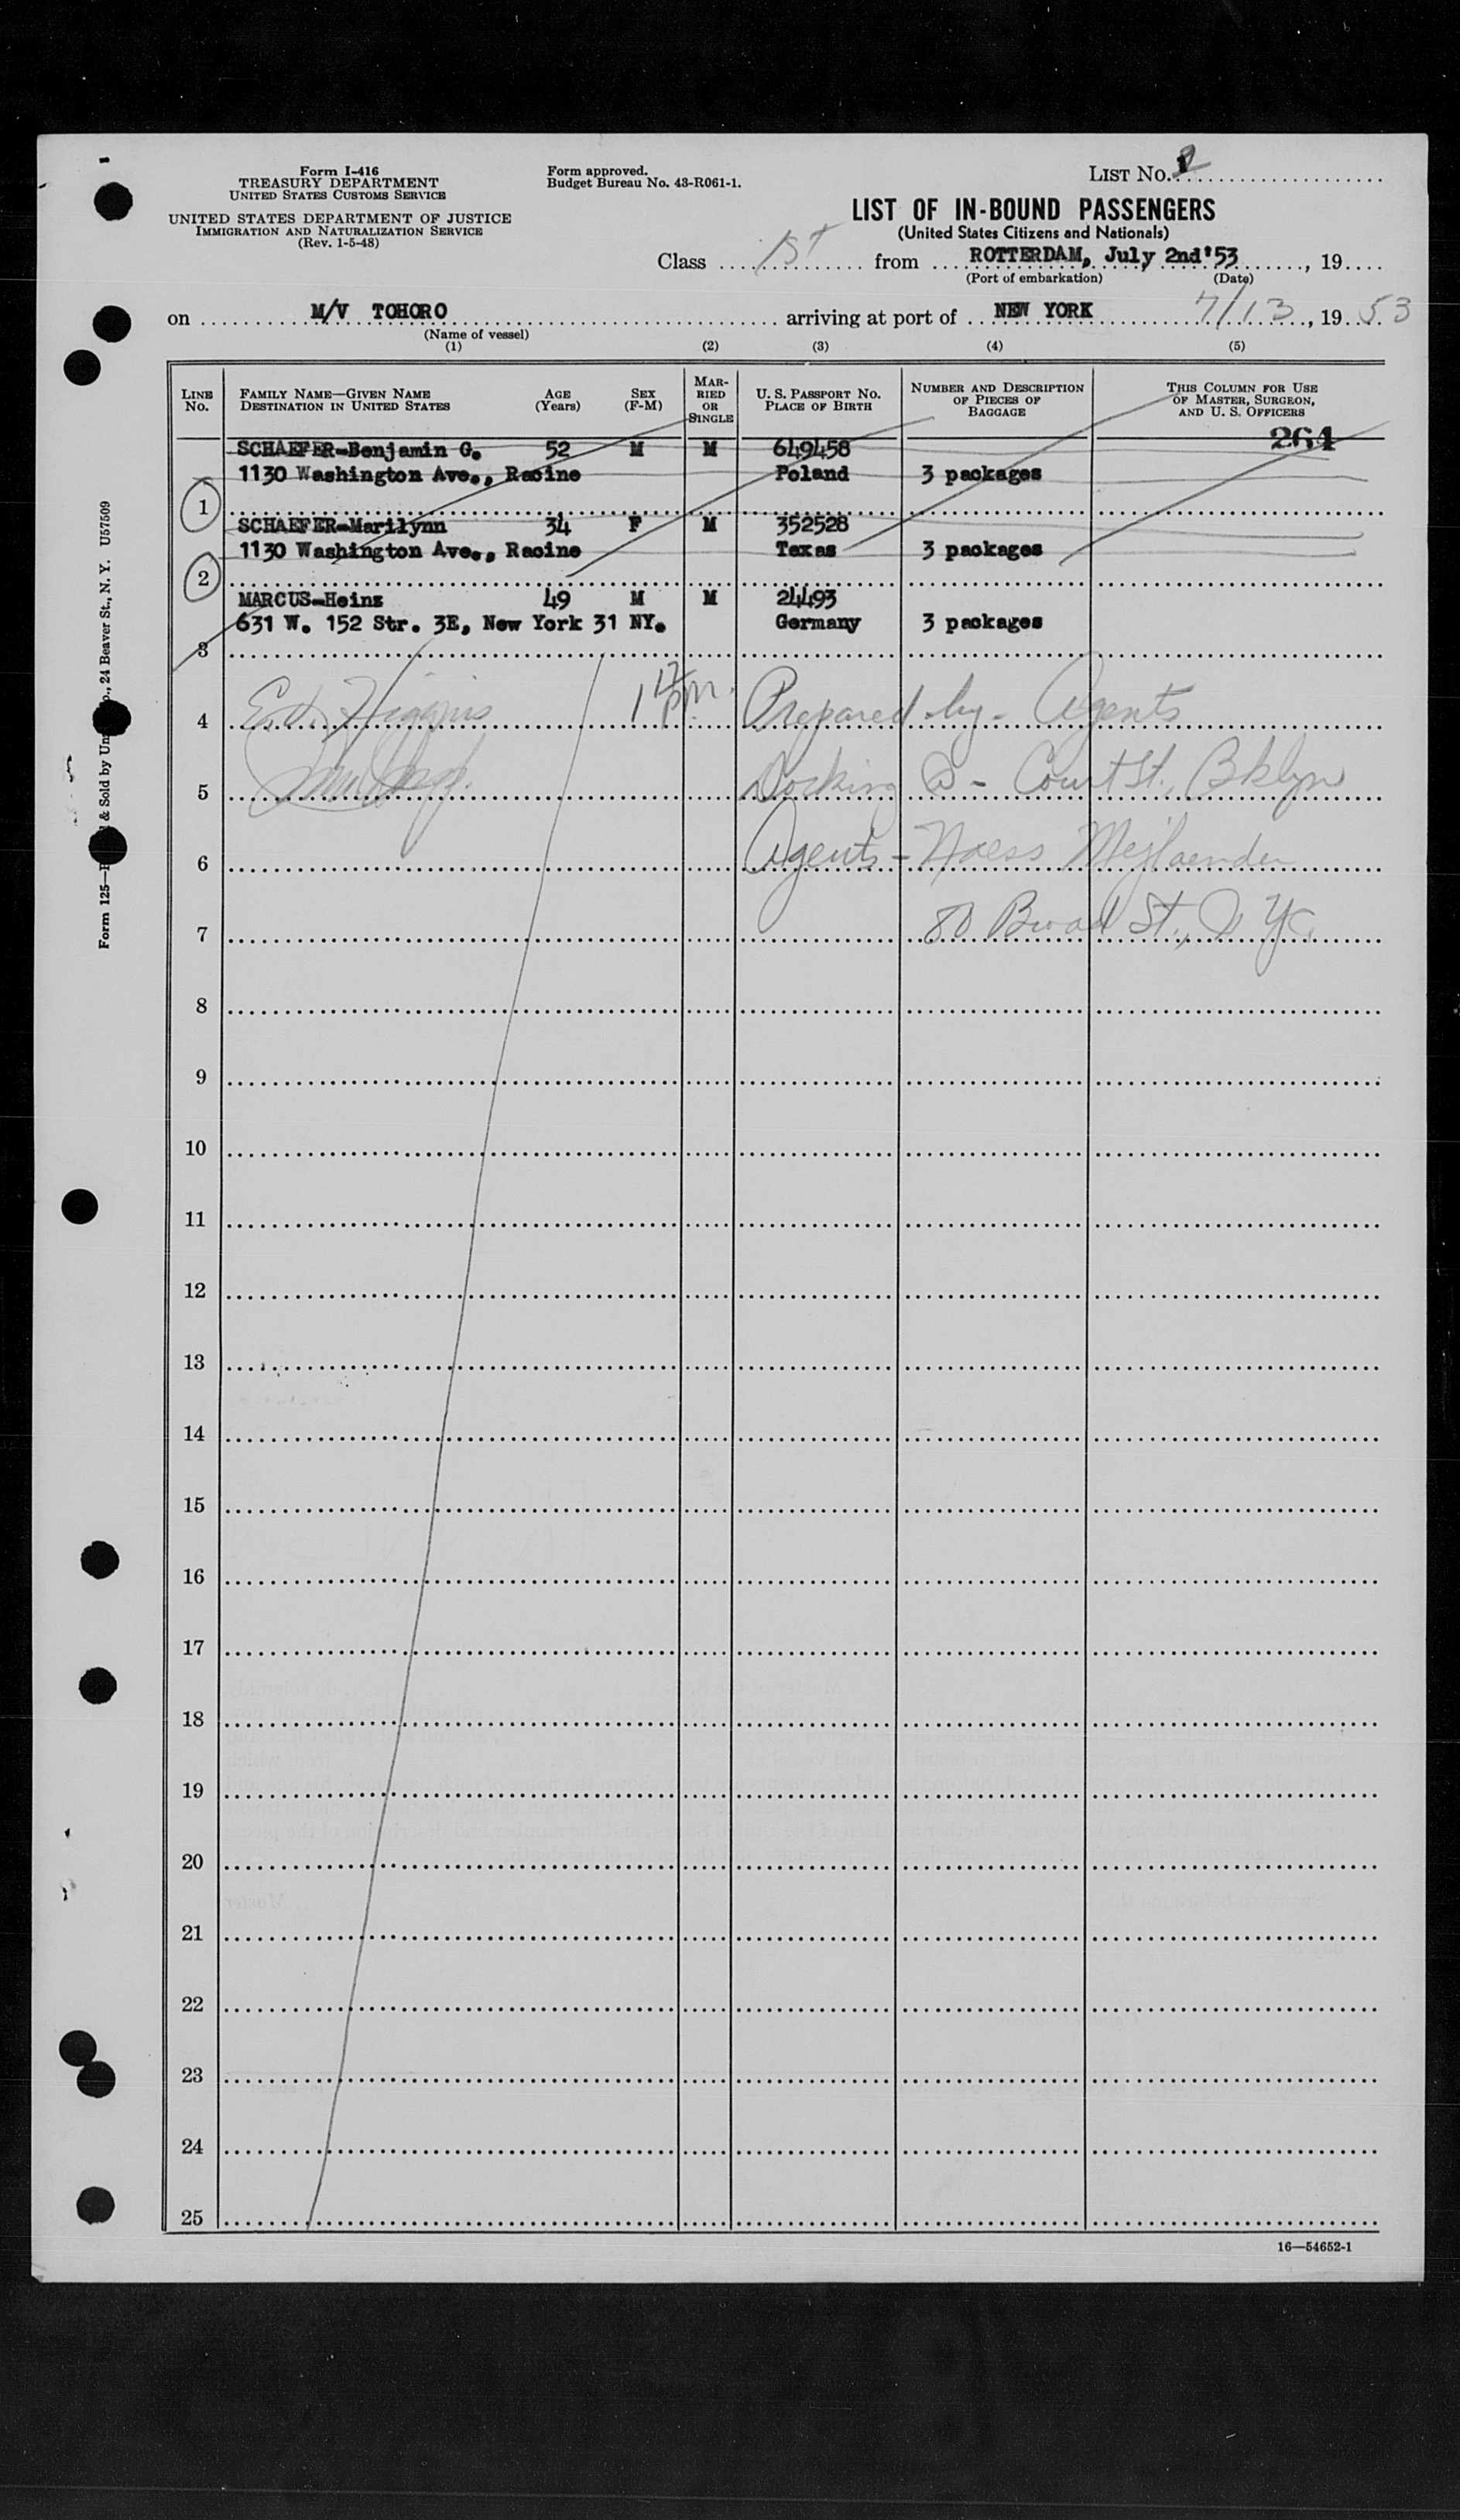 Form I-416
TREASURY DEPARTMENT
UNITED STATES CUSTOMS SERVICE
UNITED STATES DEPARTMENT OF JUSTICE
IMMIGRATION AND NATURALIZATION SERVICE
(Rev. 1-5-48)
Form approved.
Budget Bureau No. 43-R061-1.
LIST No. 2
LIST OF IN-BOUND PASSENGERS
(United States Citizens and Nationals)
Class 1st from ROTTERDAM, July 2nd'53, 19
(Port of embarkation) (Date)
on M/V TOHORO arriving at port of NEW YORK 7/13, 1953
(Name of vessel)
(1) (2) (3) (4) (5)
LINE No. FAMILY NAME—GIVEN NAME DESTINATION IN UNITED STATES AGE (Years) SEX (F-M) MARRIED OR SINGLE U. S. PASSPORT No. PLACE OF BIRTH NUMBER AND DESCRIPTION OF PIECES OF BAGGAGE THIS COLUMN FOR USE OF MASTER, SURGEON, AND U. S. OFFICERS
264
SCHAEFER-Benjamin G. 52 M M 649458
1130 Washington Ave., Racine Poland 3 packages
1
SCHAEFER-Marilynn 34 F M 352528
1130 Washington Ave., Racine Texas 3 packages
2
MARCUS-Heinz 49 M M 24493
631 W. 152 Str. 3E, New York 31 NY. Germany 3 packages
3
4 Ed. Higgins 1 17 pm. Prepared by - Agents
5 Docking @ - Court St., Bklyn
6 Agents - Naess Mejlaender
7 80 Broad St., N Y C
8
9
10
11
12
13
14
15
16
17
18
19
20
21
22
23
24
25
16—54652-1
Form 125— & Sold by Un o., 24 Beaver St., N. Y. U57509